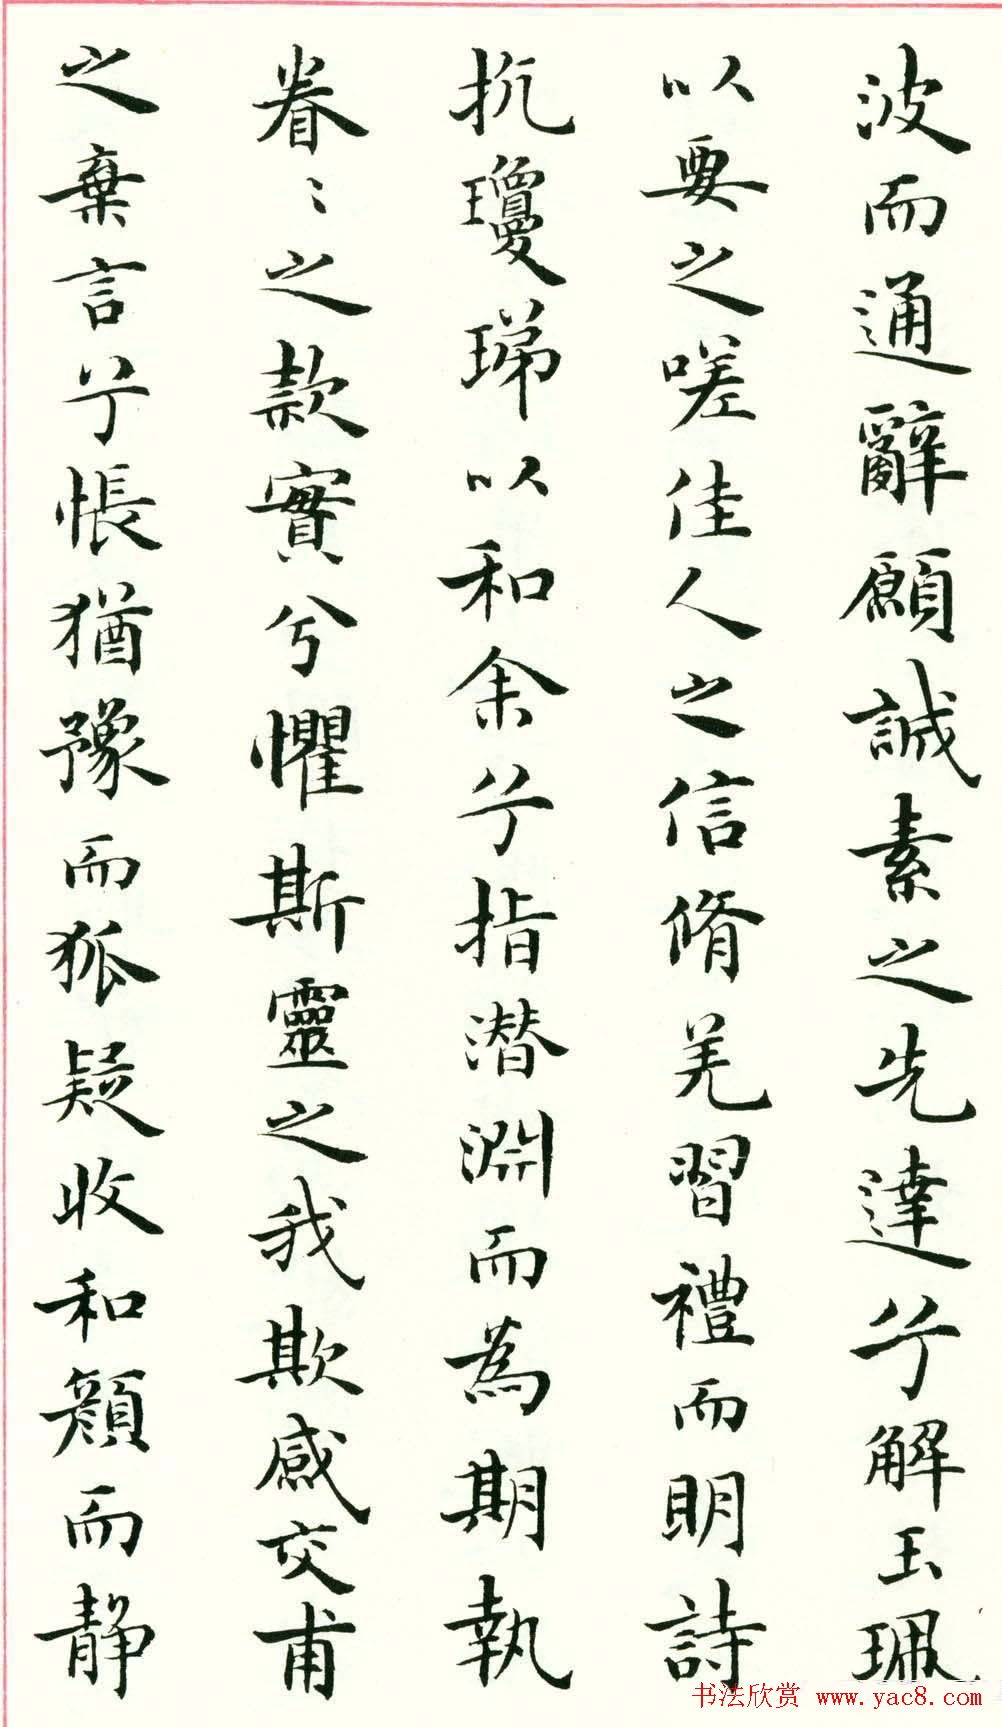 波而通辭願誠素之先達兮解玉珮
以要之嗟佳人之信脩羌習禮而明詩
抗瓊珶以和余兮指潛淵而為期執
眷〻之款實兮懼斯靈之我欺感交甫
之棄言兮悵猶豫而狐疑收和顏而静
书法欣赏 www.yac8.com